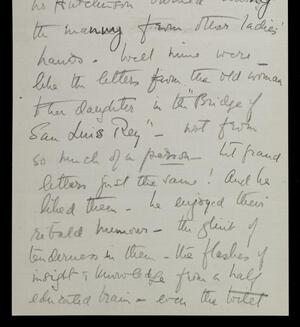 Mr Hutchinson burned among
the many from other ladies'
hands. Well mine were
like the letters from the old woman
to her daughter in the "Bridge of
San Luis Rey" - not from
so much of a person - but grand
letters just the same! And he
liked them - he enjoyed their
ribald humour - the glint of
tenderness in them - the flashes of
insight & knowledge from a half
educated brain - even the